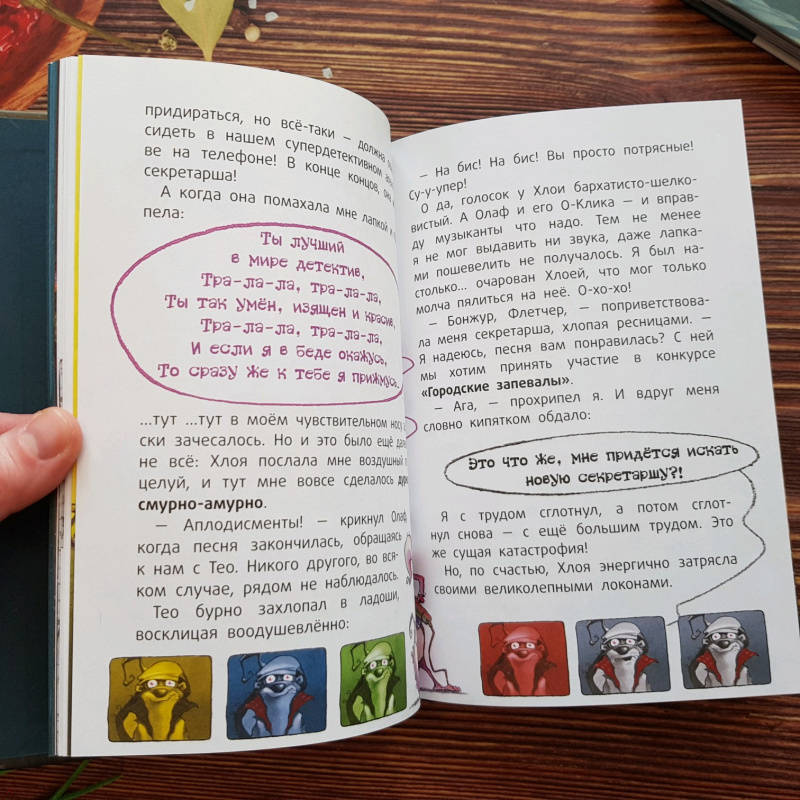 придираться, но всё-таки — должна
сидеть в нашем супердетективном
ве на телефоне! В конце концов, она
секретарша!
А когда она помахала мне лапкой и
пела:
Ты лучший
в мире детектив,
Тра-ла-ла, тра-ла-ла,
Ты так умён, изящен и красив,
Тра-ла-ла, тра-ла-ла,
И если я в беде окажусь,
То сразу же к тебе я прижмусь...
...тут ...тут в моём чувствительном носу
ски зачесалось. Но и это было ещё
не всё: Хлоя послала мне воздушный
целуй, и тут мне вовсе сделалось
смурно-амурно.
— Аплодисменты! — крикнул Олаф,
когда песня закончилась, обращаясь
к нам с Тео. Никого другого, во вся-
ком случае, рядом не наблюдалось.
Тео бурно захлопал в ладоши,
восклицая воодушевлённо:
— На бис! На бис! Вы просто потрясные!
Су-у-упер!
О да, голосок у Хлои бархатисто-шелко-
вистый. А Олаф и его О-Клика — и вправ-
ду музыканты что надо. Тем не менее
я не мог выдавить ни звука, даже лапка-
ми пошевелить не получалось. Я был на-
столько... очарован Хлоей, что мог только
молча пялиться на неё. О-хо-хо!
— Бонжур, Флетчер, — поприветствова-
ла меня секретарша, хлопая ресницами. —
Я надеюсь, песня вам понравилась? С ней
мы хотим принять участие в конкурсе
«Городские запевалы».
— Ага, — прохрипел я. И вдруг меня
словно кипятком обдало:
Это что же, мне придётся искать
новую секретаршу?!
Я с трудом сглотнул, а потом сглот-
нул снова — с ещё большим трудом. Это
же сущая катастрофа!
Но, по счастью, Хлоя энергично затрясла
своими великолепными локонами.